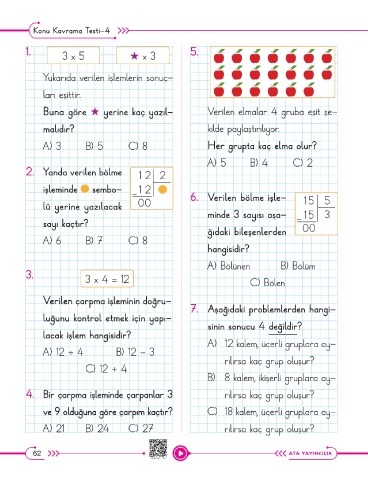 Konu Kavrama Testi-4
1.
3 x 5
★ x 3
Yukarıda verilen işlemlerin sonuç-
ları eşittir.
Buna göre ★ yerine kaç yazıl-
malıdır?
A) 3 B) 5 C) 8
2. Yanda verilen bölme
işleminde sembo-
lü yerine yazılacak
sayı kaçtır?
12 2
- 12
00
A) 6 B) 7 C) 8
3.
3 x 4 = 12
Verilen çarpma işleminin doğru-
luğunu kontrol etmek için yapı-
lacak işlem hangisidir?
A) 12 ÷ 4 B) 12 - 3
C) 12 + 4
4. Bir çarpma işleminde çarpanlar 3
ve 9 olduğuna göre çarpım kaçtır?
A) 21 B) 24 C) 27
5.
Verilen elmalar 4 gruba eşit şe-
kilde paylaştırılıyor.
Her grupta kaç elma olur?
A) 5 B) 4 C) 2
6. Verilen bölme işle-
minde 3 sayısı aşa-
ğıdaki bileşenlerden
hangisidir?
15 5
- 15 3
00
A) Bölünen B) Bölüm
C) Bölen
7. Aşağıdaki problemlerden hangi-
sinin sonucu 4 değildir?
A) 12 kalem, üçerli gruplara ay-
rılırsa kaç grup oluşur?
B) 8 kalem, ikişerli gruplara ay-
rılırsa kaç grup oluşur?
C) 18 kalem, üçerli gruplara ay-
rılırsa kaç grup oluşur?
62
ATA YAYINCILIK